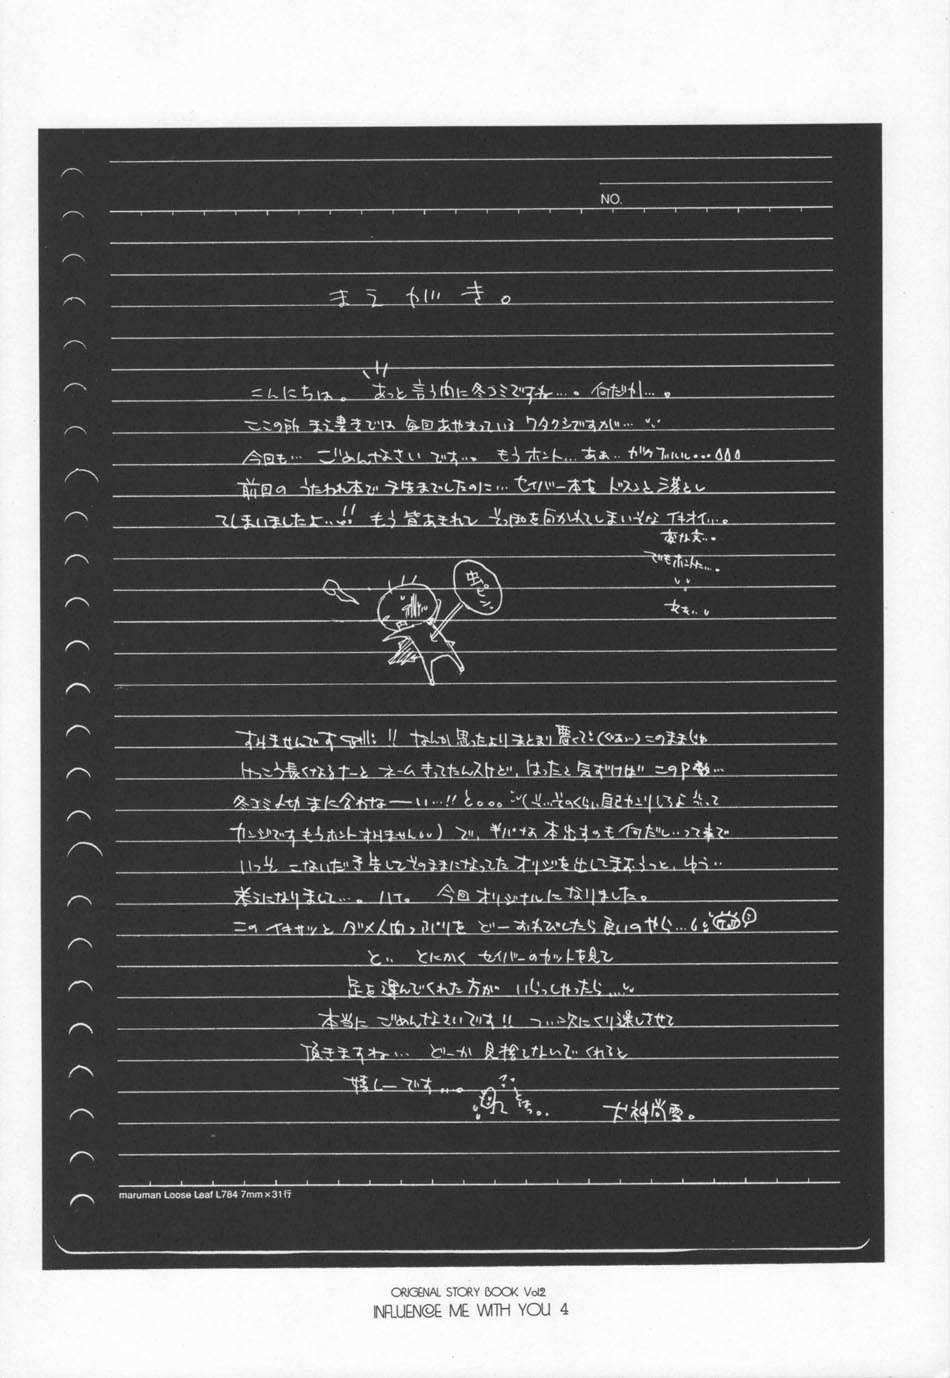 NO.
まえがき。
こんにちは。 あっと言う内に冬コミですね…。何だか…。
ここの所 まえ書きでは 毎回あやまっている ワタクシですが…
今回も… ごめんなさいです…。もうホント…あぁ…ガクブルル…
前回の うたわれ本で 予告までしたのに… セイバー本を ドスンと落とし
てしまいましたよ…!! もう皆あきれて そっぽを向かれてしまいそな イキオイ…。
変な文…。
でもホントに…。
虫ピン。
すみませんです !! なんか思ったよりまとまり悪くて (ぐあぃ…) このままじゃ
けっこう長くなるなーと ネームきってたんスけど、はったと気ずけば このP数…
冬コミ〆切 まに合わなーい…!! と。。。 (…そのくらい自己カンリしろよ って
カンジです もうホントすみません) で、半パな 本出すのも何だし…って事で
いっそ こないだ予告してそのままになってた オリジを出してまおうっと、ゆう
考えになりまして…。ハイ。 今回オリジナルになりました。
このイキサツと ダメ人間っぷりを どーおわびしたら良いのやら…
と、とにかく セイバーのカットを見て
足を運んでくれた方が いらっしゃったら…
本当に ごめんなさいです!! つい次にくり越しさせて
頂きますね… どーか 見捨てないでくれると
嬉しーです…。
犬神尚雪。
maruman Loose Leaf L784 7mm×31行
ORIGENAL STORY BOOK Vol2
INFLUENCE ME WITH YOU 4